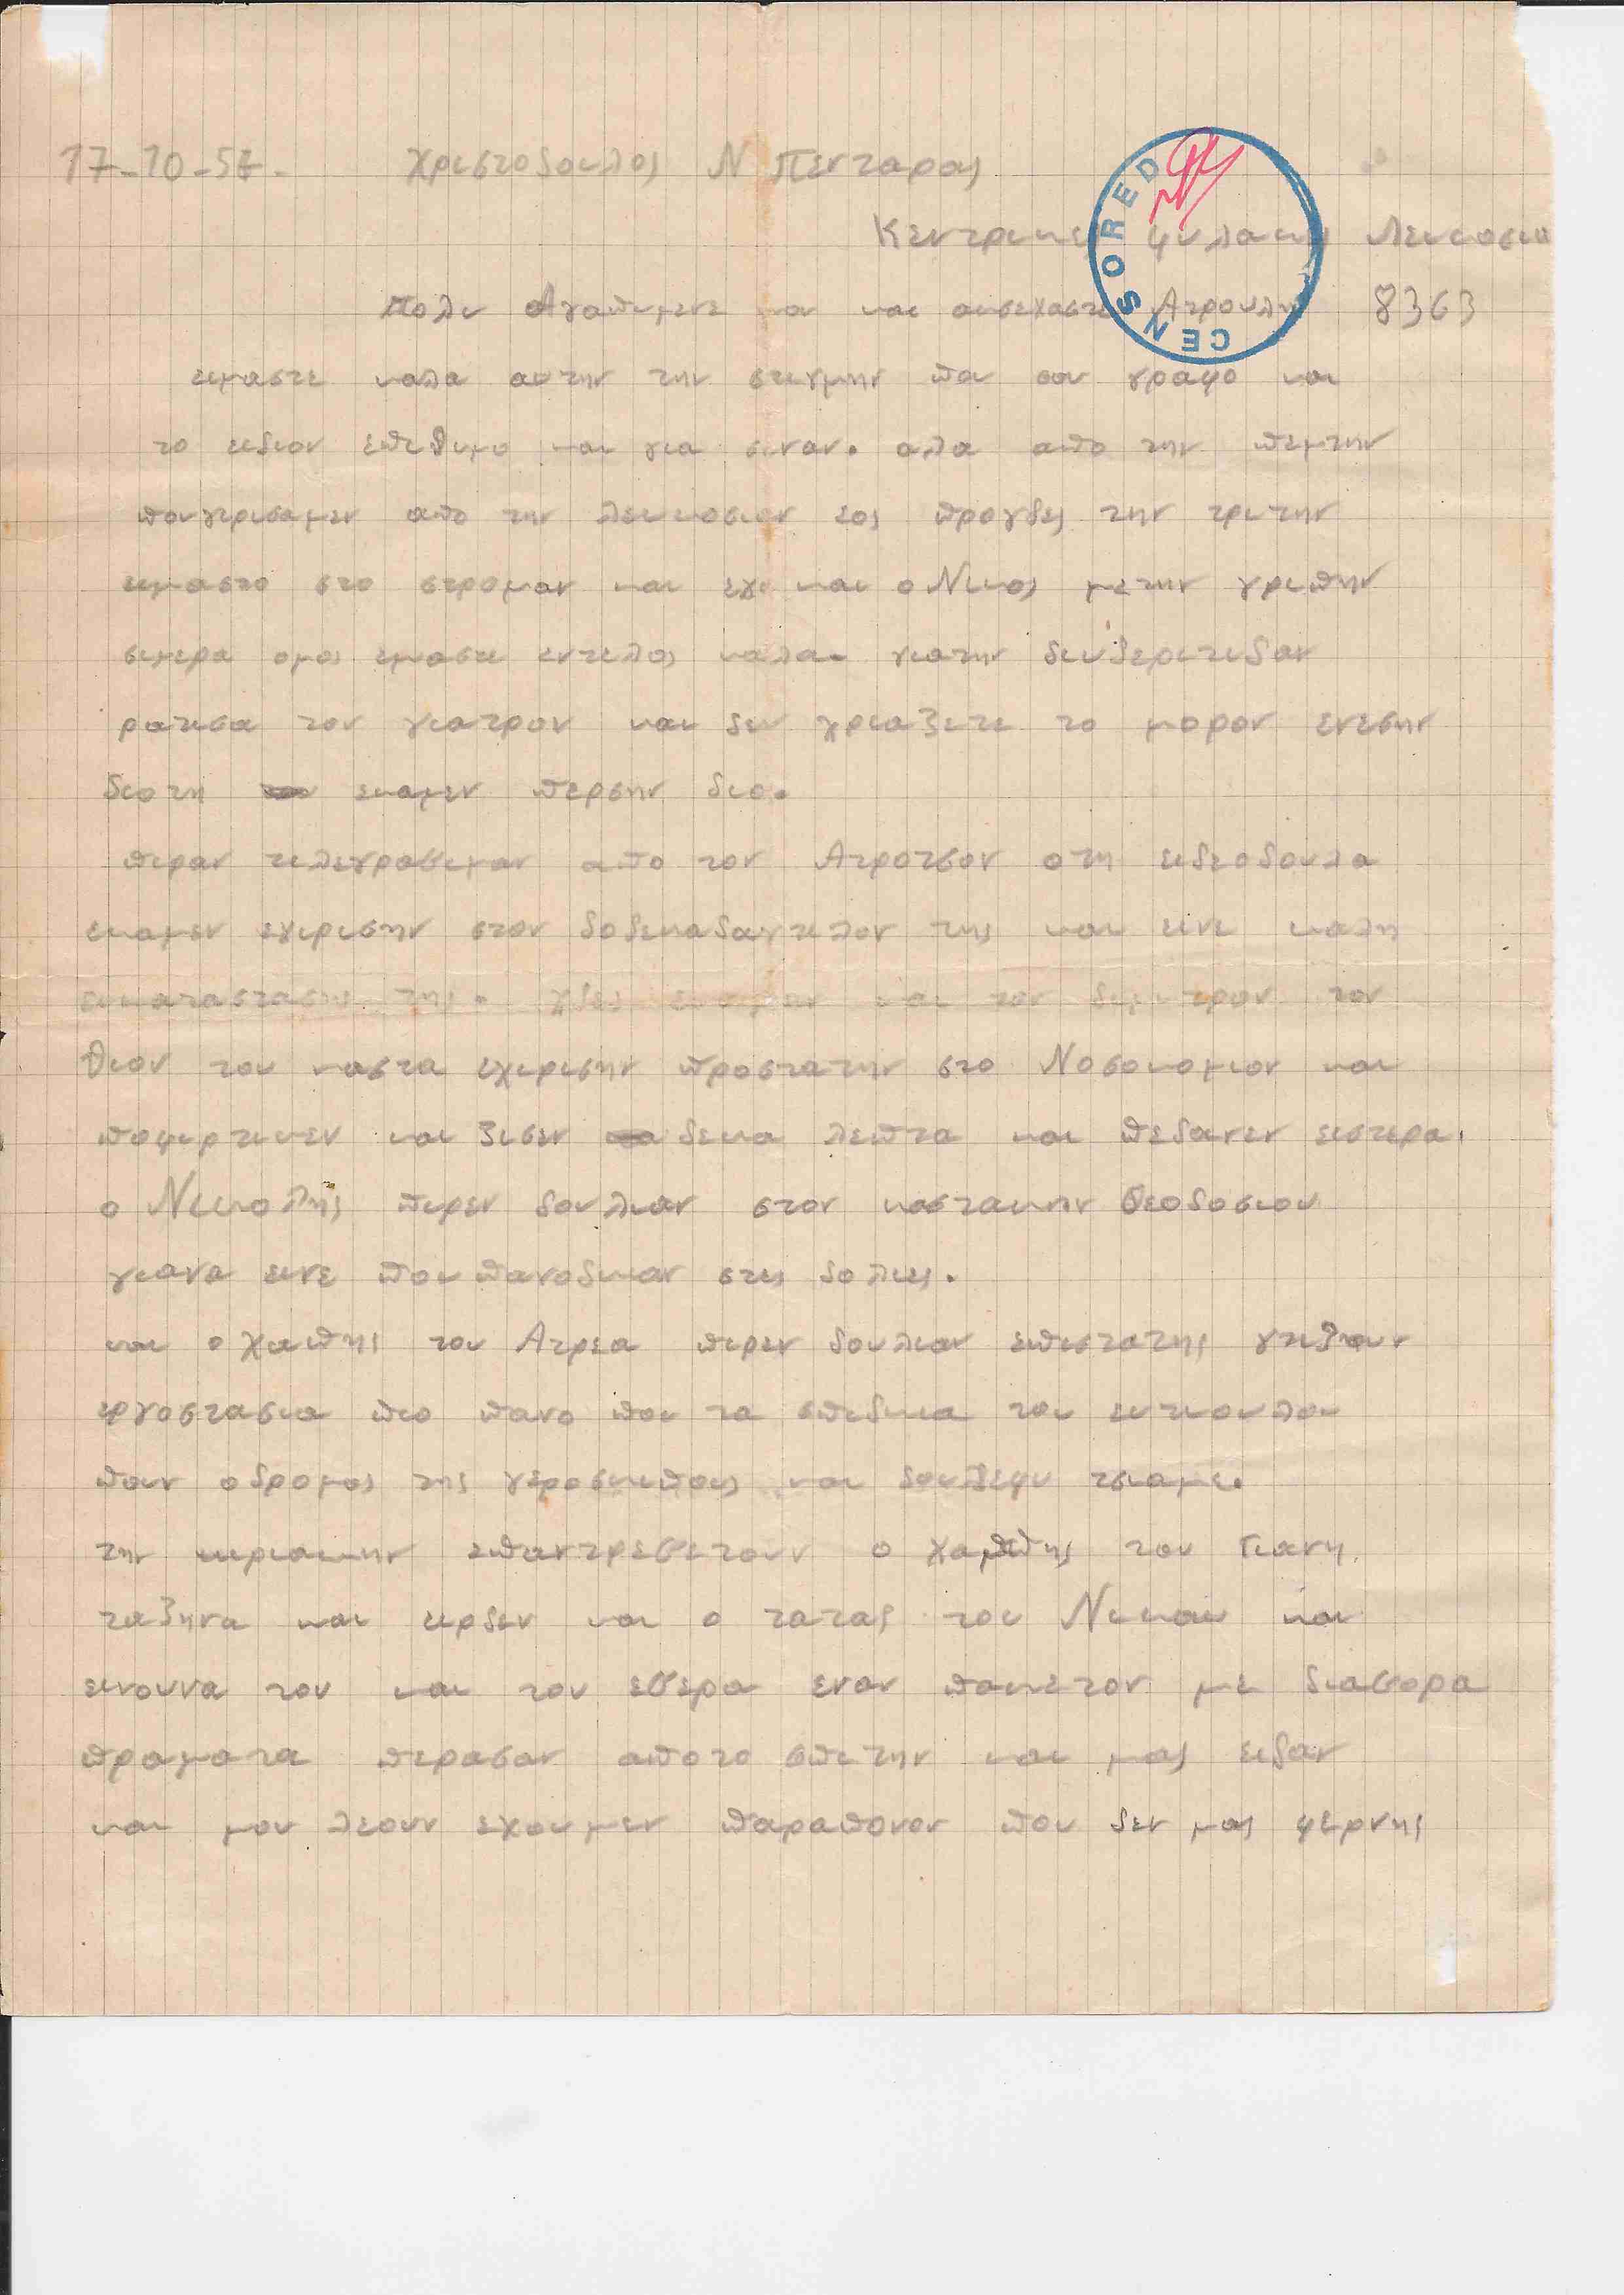 17-10-57. Χριστοδουλος Ν Πενταρας
CENSORED
Κεντρικες φυλακης Λευκοσια
πολυ Αγαπιμενε και Ατρουλη 8363
ειμαστε καλα αυτην την στιγμην που σου γραφο και
το ειδιον επεθιμο και για σεναν. αλα απο την πεμτην
πουγιρισαμεν απο την λευκοσιαν εος προχδες την τριτην
ειμαστο στο στρομαν και εγο και ο Νικος με την γριπην
σιμερα ομος ειμαστε εντελος καλα. γιατην δευδεριτιδαν
ρατισα τον γιατρον και δεν χριαζετε το μορον ενεσην
διοτη εκαμεν περσην διο.
πιραν τιλεγραφιμαν απο τον Ατροτσον οτη ειδεοδουλα
εκαμεν εχιρισην στον δοδεκαδαγτιλον της και εινε καλη
εικαταστασης της. χδες εκαμαν και τον διμιτρον τον
θιον του κοστα εχιρισην προστατην στο Νοσοκομιον και
ποφιρτικεν και ζισεν δεκα λεπτα και πεδανεν ειστερα.
ο Νικολης πιρεν δουλιαν στον κοστακην Θεοδοσιου
γιανα εινε που πανοδικαν στις δολιες.
και ο χαπης του Ατρεα πιρεν δουλιαν επιστατης χτιζουν
εργοστασια πιο πανο που τα σπιδικα του
παν ο δρομος της γεροσκιπους και δουλεφι τσιαμε.
την κιριακην επαντρεφετουν ο χαμπης του Γιανη
ταζηνα και ειρδεν και ο τατας του Νικου και
εινουνα του και του εφερα εναν πακετον με διαφορα
πραματα περασαν αποτο σπιτην και μας ειδαν
και μου λεουν εχουμεν παραπονον που δεν μας φερνης